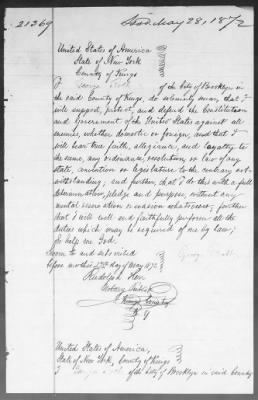 21369
Issd. May 28, 1872
United States of America
State of New York
County of Kings
I George of the City of Brooklyn in
the said County of Kings, do solemnly swear, that I
will support, protect, and defend the Constitution
and Government of the United States against all
enemies, whether domestic or foreign, and that I
will bear true faith, allegiance, and loyalty to
the same, any ordinance, resolution, or law of any
state, convention or legislature to the contrary not-
withstanding; and further, that I do this with a full
determination, pledge, and purpose, without any
mental reservation or evasion whatsoever; further
that I will well and faithfully perform all the
duties which may be required of me by law;
So help me God.
Sworn to and subscribed
before me this 27th day of May 1872
Rudolph
Notary Public
Kings County
N Y
United States of America,
State of New York, County of Kings
I George of the City of Brooklyn in said County